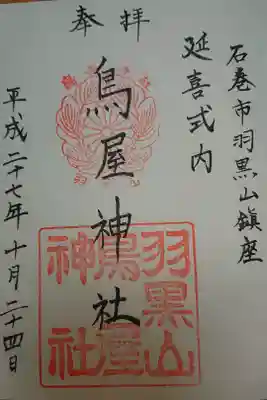 石巻市羽黒山鎮座
延喜式内
奉拝
鳥屋神社
羽黒山
鳥屋
神社
平成二十七年十月二十四日